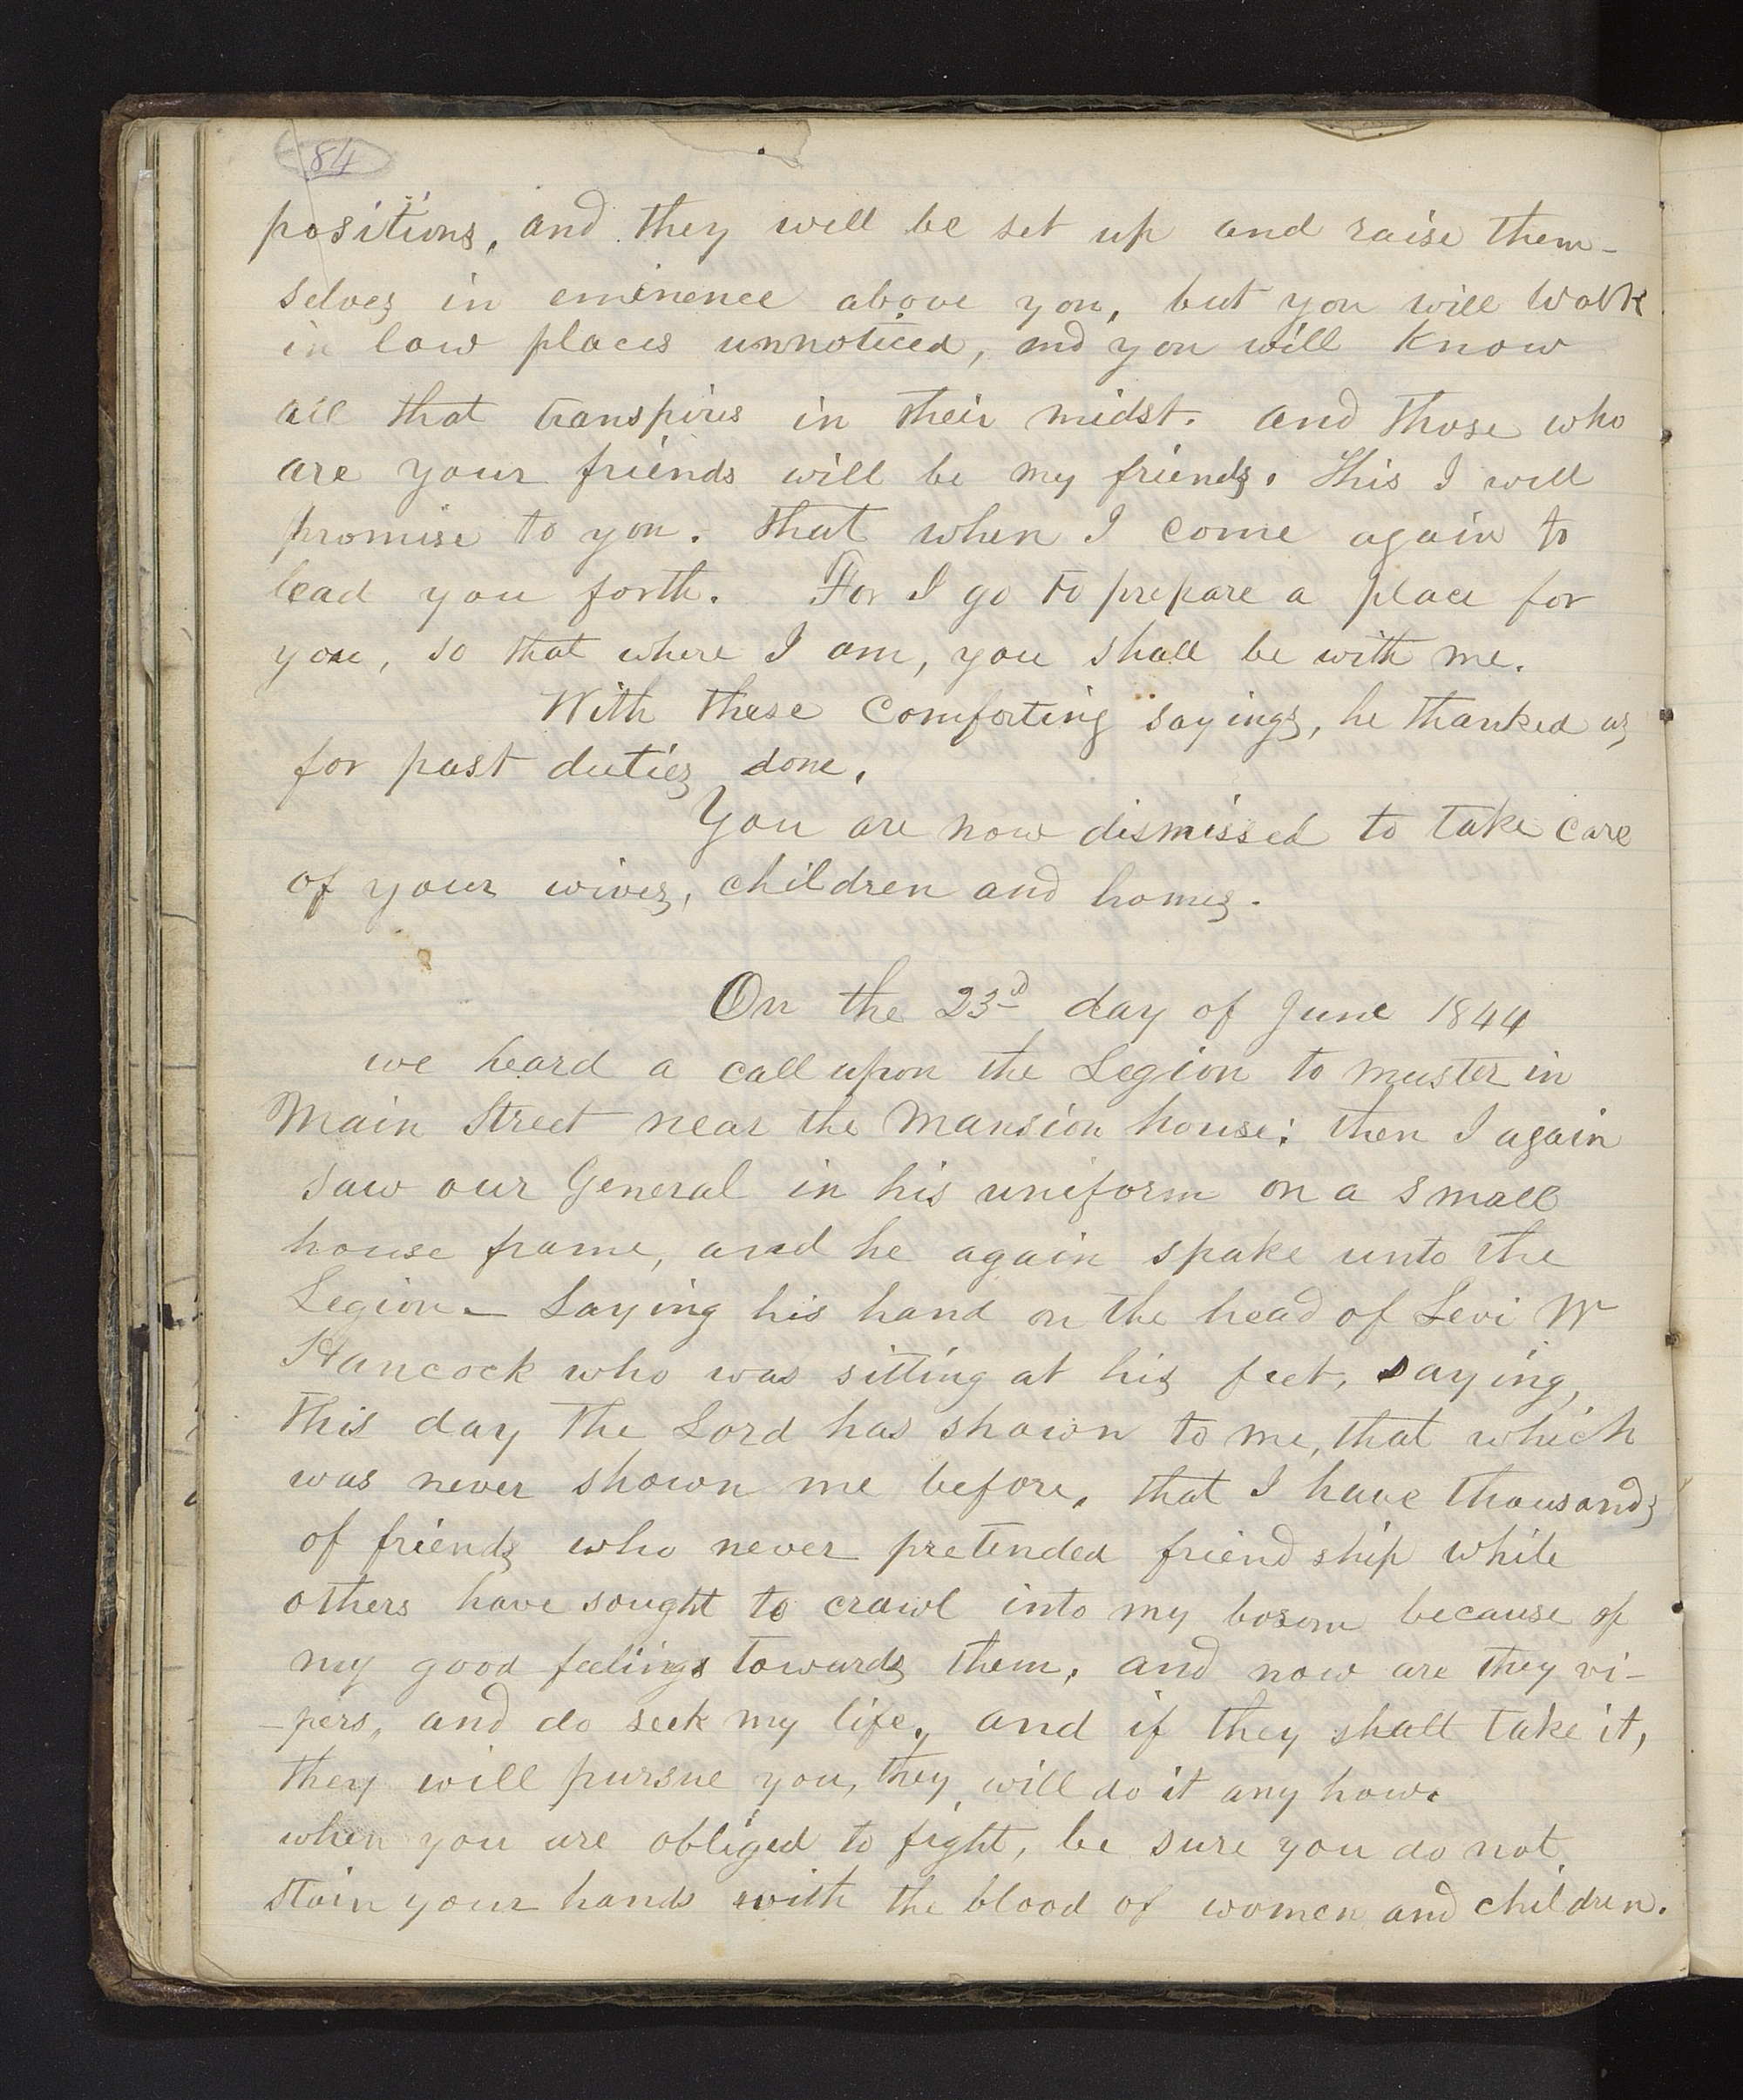 84
positions, and they will be set up and raise them-
selves in eminence above you, but you will walk
in low places unnoticed, and you will know
all that transpires in their midst. and those who
are your friends will be my friends. This I will
promise to you. that when I come again to
lead you forth. For I go to prepare a place for
you, so that where I am, you shall be with me.
With these comforting sayings, he thanked us
for past duties done.
You are now dismissed to take care
of your wives, children and homes.
On the 23d day of June 1844
we heard a call upon the Legion to muster in
Main Street near the Mansion house; then I again
saw our General in his uniform on a small
house frame, and he again spake unto the
Legion - Laying his hand on the head of Levi W
Hancock who was sitting at his feet, saying,
this day the Lord has shown to me, that which
was never shown me before, that I have thousands
of friends who never pretended friend ship while
others have sought to crawl into my bosom because of
my good feelings towards them, and now are they vi-
-pers, and do seek my life, and if they shall take it,
they will pursue you, they will do it any how.
when you are obliged to fight, be sure you do not
stain your hands with the blood of women and children.